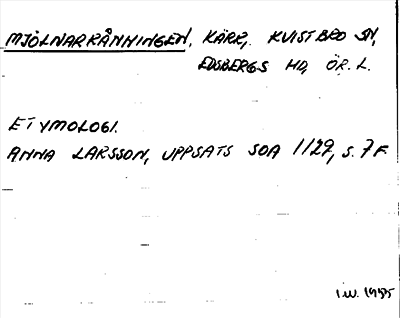 MJÖLNARRÅNNINGEN, KÄRR, KVISTBRO SN,
EDSBERGS HD, ÖR. L.
ETYMOLOGI.
ANNA LARSSON, UPPSATS SOA 1129, S. 7 F.
I.W. 1985